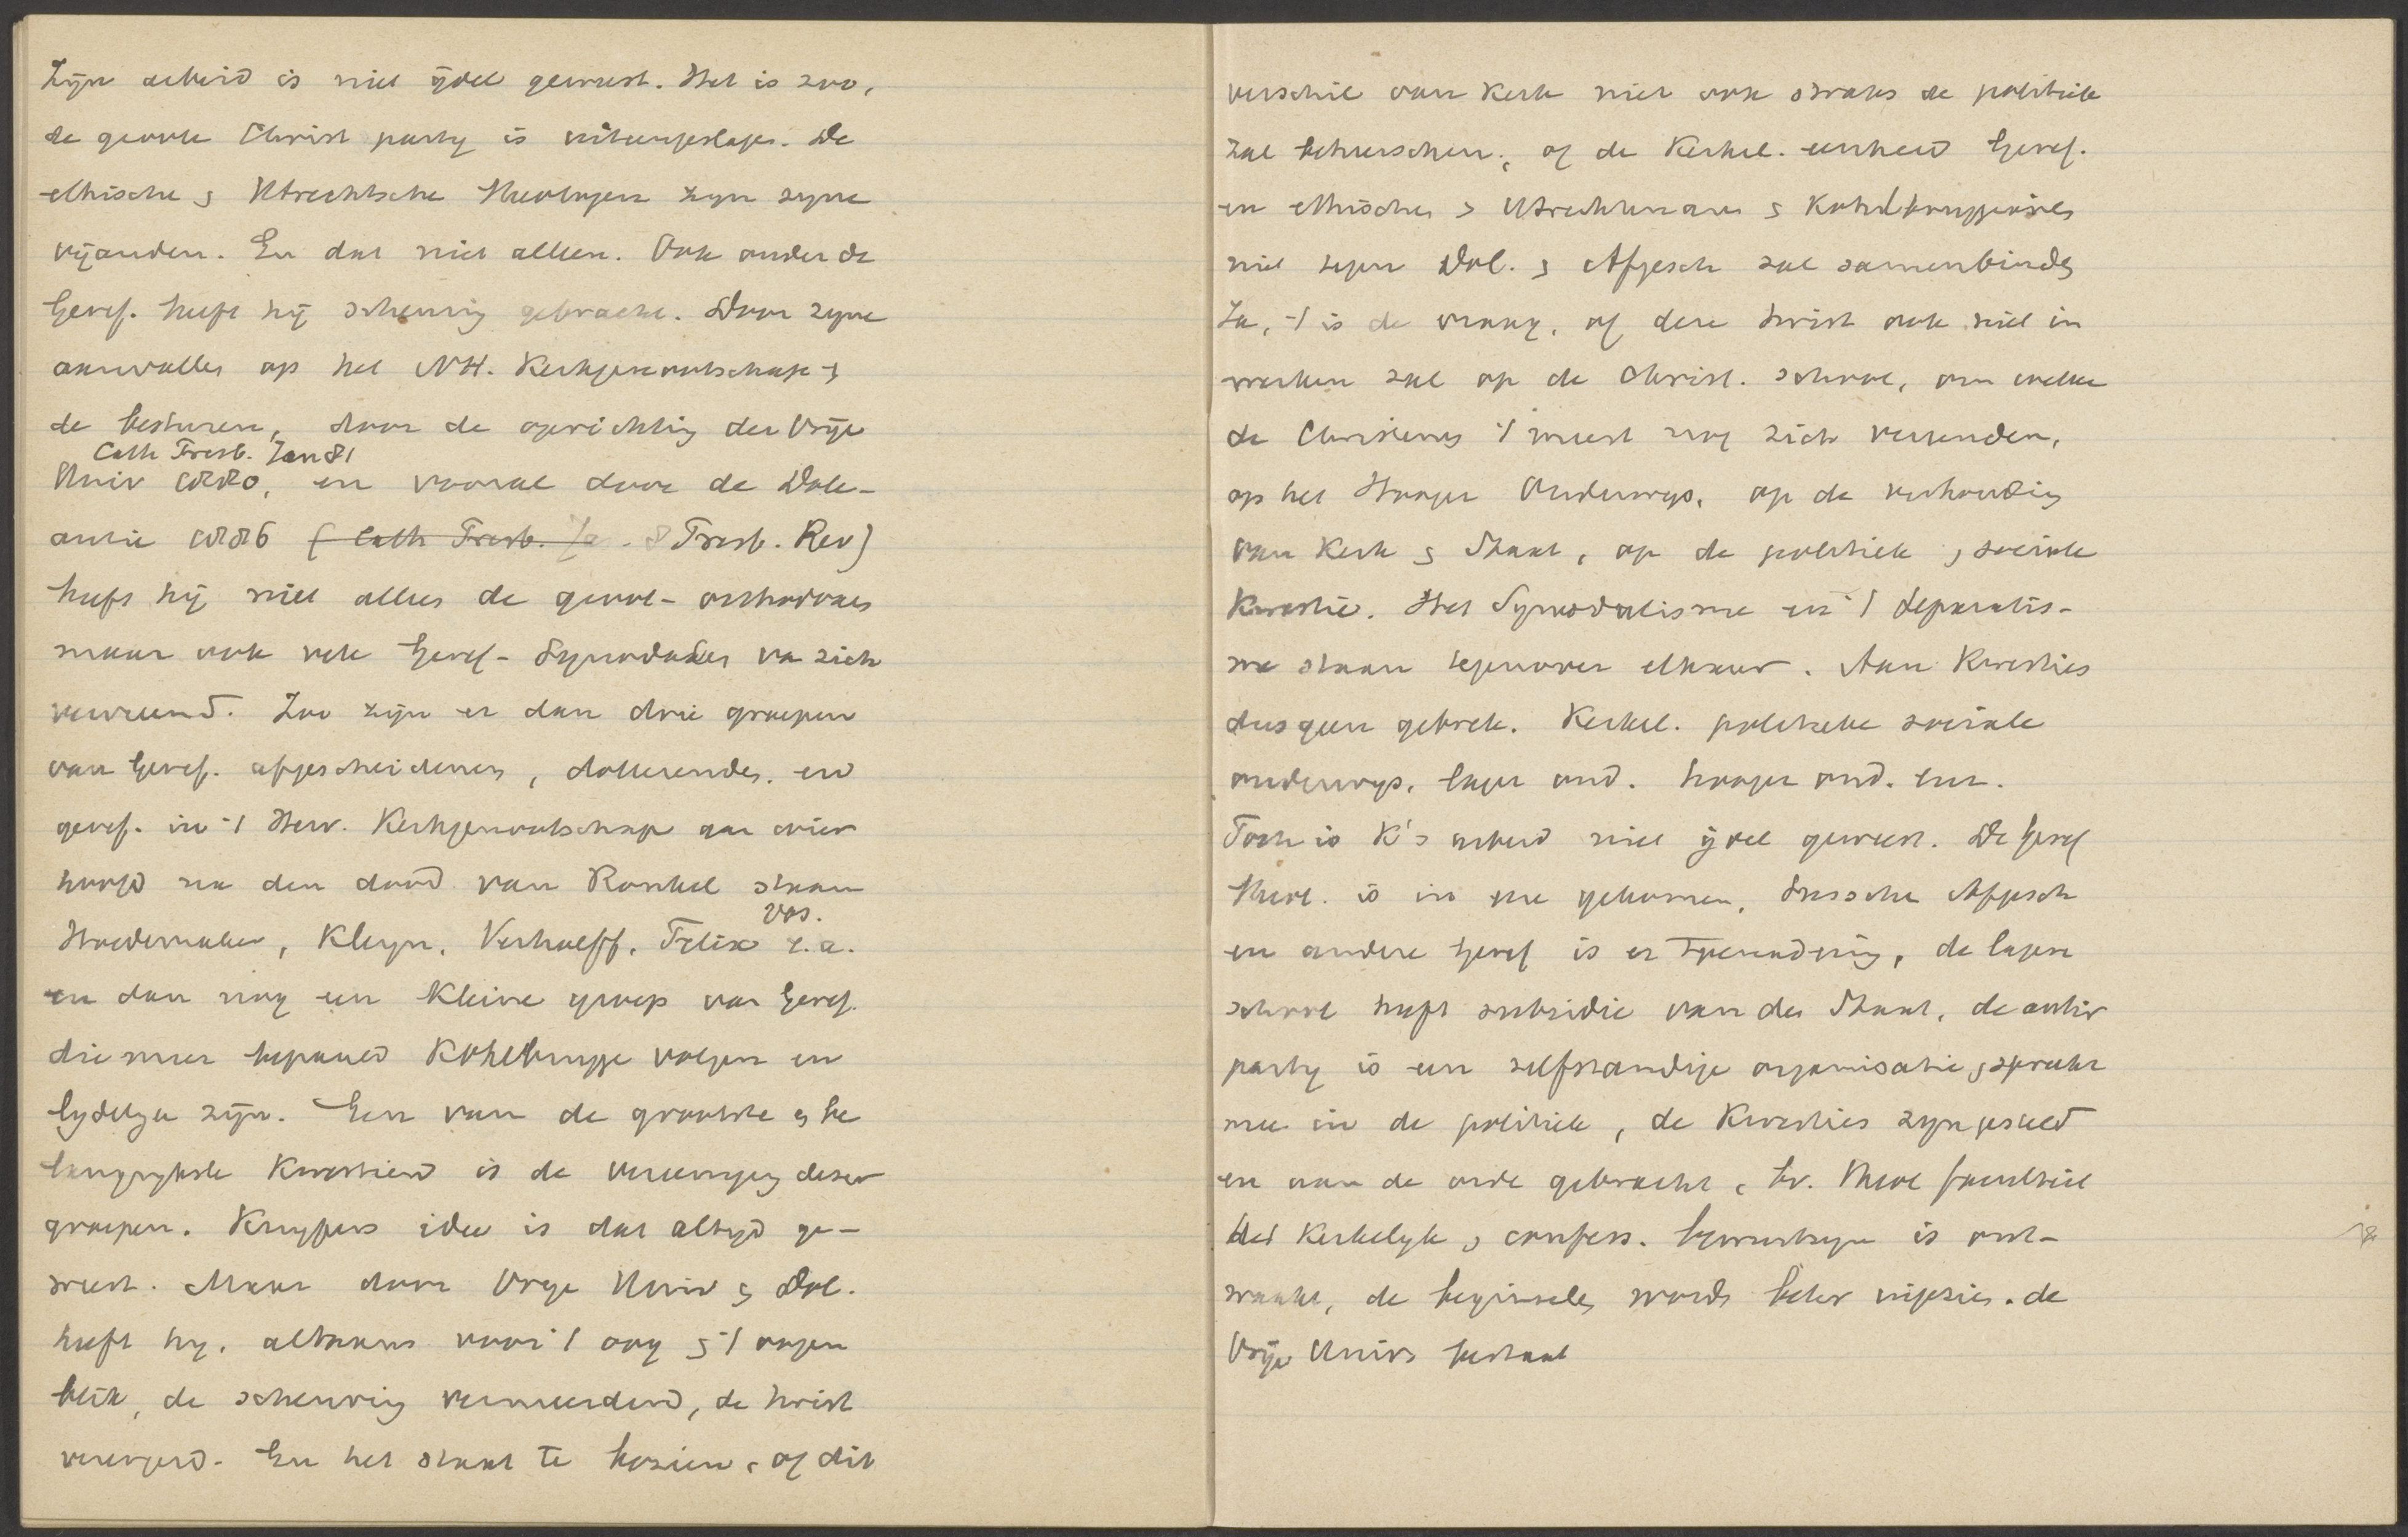 Zijn arbeid is niet ijdel geweest. Het is zoo,
de groote Christ party is uiteengeslagen. De
ethische & Utrechtsche Theologen zyn zyne
vijanden. En dat niet alleen. Ook onder de
Geref. heeft hij scheuring gebracht. Door zyne
aanvallen op het NH. Kerkgenootschap &
de besturen, door de oprichting der Vrije
Cath Presb. Jan 81
Univ 1880, en vooral door de Dole-
antie 1886 (Cath Presb. Ja. 8 Presb. Rev)
heeft hij niet alleen de groot-orthodoxen
maar ook vele Geref-Synodalen van zich
vervreemd. Zoo zijn er dan drie groepen
van Geref. afgescheidenen, dolerenden, en
geref. in 't Herv. Kerkgenootschap aan wier
hoofd na den dood van Ronkel staan
Vos.
Hoedemaker, Kleyn, Verhoeff, Felix e.a.
en dan nog een kleine groep van Geref.
die meer bepaald Kohlbrugge volgen en
lydelyk zijn. Een van de grootste & be
langrykste Kwestien is de vereeniging dezer
groepen. Kuypers idee is dat altyd ge-
weest. Maar door Vrye Univ & Dol.
heeft hy, althans voor 't oog & 't oogen
blik, de scheuring vermeerderd, de twist
verergerd. En het staat te bezien, of dit
verschil van Kerk niet ook straks de politiek
zal beheerschen, of de Kerkel. eenheid Geref.
en ethischen & Utrechtenaars & Kohlbruggianen
niet tegen Dol. & Afgesch zal samenbinden
Ja, 't is de vraag, of deze twist ook niet in
werken zal op de Christ. school, om welke
de Christenen 't meest nog zich vereenden,
op het Hooger Onderwys, op de verhouding
van Kerk & Staat, op de politiek, sociale
Kwestie. Het Synodalisme en 't Separatis-
me staan tegenover elkaar. Aan Kwesties
dus geen gebrek. Kerkel. politieke sociale
onderwys, lager ond. hooger ond. enz.
Toch is K's arbeid niet ijdel geweest. De Geref
Theol. is in ere gekomen, tussche Afgesch
en andere Geref is er toenadering, de lagere
school heeft subsidie van den Staat, de antir
party is een zelfstandige organisatie, spreekt
mee in de politiek, de Kwesties zyn gesteld
en aan de orde gebracht, bv. Theol faculteit
Het Kerkelyk & confess. bewustzyn is ont-
waakt, de beginselen worden beter ingezien. de
Vrije Univ bestaat